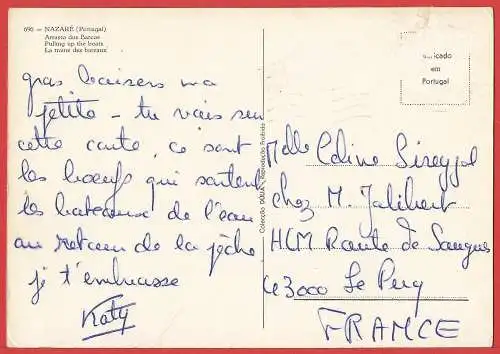 696 — NAZARÉ (Portugal)
Arrasto dos Barcos
Pulling up the boats
La traine des bateaux
gros baisers ma
petite - tu vois sur
cette carte, ce sont
les bœufs qui sortent
les bateaux de l'eau
au retour de la pêche
je t'embrasse
Katy
Colecção DÚLIA - Reprodução Proibida
icado
em
Portugal
Melle Céline
chez M. Jalibert
HLM Route de Saugues
43000 Le Puy
FRANCE